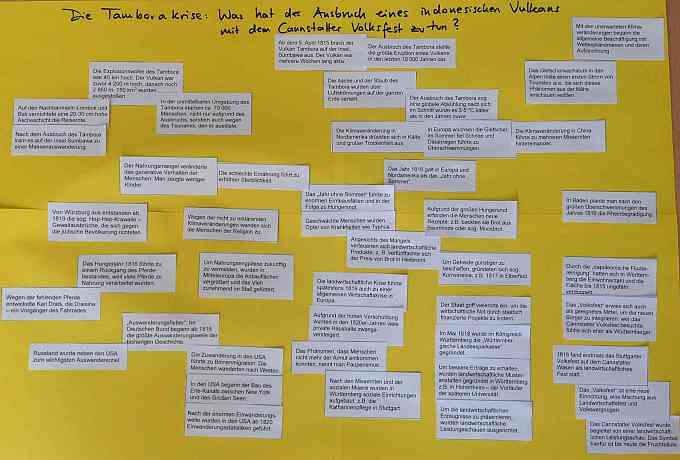 Die Tamborakrise: Was hat der Ausbruch eines indonesischen Vulkans
mit dem Cannstatter Volksfest zu tun?
Ab dem 5. April 1815 brach der
Vulkan Tambora auf der Insel
Sumbawa aus. Der Vulkan war
mehrere Wochen lang aktiv.
Der Ausbruch des Tambora stellte
die größte Eruption eines Vulkans
in den letzten 10 000 Jahren dar.
Mit der unerwarteten Klima-
veränderungen begann die
allgemeine Beschäftigung mit
Wetterphänomenen und deren
Aufzeichnung.
Die Explosionswolke des Tambora
war 45 km hoch. Der Vulkan war
zuvor 4 200 m hoch, danach noch
2 850 m. 150 km³ wurden
ausgestoßen.
Die Asche und der Staub des
Tambora wurden über
Luftströmungen auf der ganzen
Erde verteilt.
Das Gletscherwachstum in den
Alpen löste einen ersten Strom von
Touristen aus, die sich dieses
Phänomen aus der Nähe
anschauen wollten.
Auf den Nachbarinseln Lombok und
Bali vernichtete eine 20-30 cm hohe
Ascheschicht die Reisernte.
In der unmittelbaren Umgebung des
Tambora starben ca. 70 000
Menschen, nicht nur aufgrund des
Ausbruchs, sondern auch wegen
des Tsunamis, den er auslöste.
Der Ausbruch des Tambora zog
eine globale Abkühlung nach sich.
Im Schnitt wurde es 3-5°C kälter
als in den Jahren zuvor.
Nach dem Ausbruch des Tambora
kam es auf der Insel Sumbawa zu
einer Massenauswanderung.
Die Klimaveränderung in
Nordamerika drückten sich in Kälte
und großer Trockenheit aus.
In Europa wuchsen die Gletscher,
im Sommer fiel Schnee und
Dauerregen führte zu
Überschwemmungen.
Die Klimaveränderung in China
führte zu mehreren Missernten
hintereinander.
Der Nahrungsmangel veränderte
das generative Verhalten der
Menschen: Man zeugte weniger
Kinder.
Die schlechte Ernährung führt zu
erhöhter Sterblichkeit.
Das Jahr 1816 galt in Europa und
Nordamerika als das „Jahr ohne
Sommer“.
Das „Jahr ohne Sommer“ führte zu
enormen Ernteausfällen und in der
Folge zu Hungersnot.
Von Würzburg aus entstanden ab
1819 die sog. Hep-Hep-Krawalle –
Gewaltausbrüche, die sich gegen
die jüdische Bevölkerung richteten.
Wegen der nicht zu erklärenden
Klimaveränderungen wandten sich
die Menschen der Religion zu.
Geschwächte Menschen wurden
Opfer von Krankheiten wie Typhus.
Aufgrund der großen Hungersnot
erfanden die Menschen neue
Rezepte: z.B. backten sie Brot aus
Baumrinde oder sog. Moosbrot.
In Baden plante man nach den
großen Überschwemmungen des
Jahres 1816 die Rheinbegradigung.
Angesichts des Mangels
verteuerten sich landwirtschaftliche
Produkte, z.B. verfünffachte sich
der Preis von Brot in Heilbronn.
Das Hungerjahr 1816 führte zu
einem Rückgang des Pferde-
bestandes, weil viele Pferde zu
Nahrung verarbeitet wurden.
Um Nahrungsengpässe zukünftig
zu vermeiden, wurden in
Mitteleuropa die Anbauflächen
vergrößert und das Vieh
zunehmend im Stall gefüttert.
Um Getreide günstiger zu
beschaffen, gründeten sich sog.
Kornvereine, z.B. 1817 in Elberfeld.
Durch die „napoleonische Flurbe-
reinigung“ hatten sich in Württem-
berg die Einwohnerzahl und die
Fläche bis 1815 ungefähr
verdoppelt.
Die landwirtschaftliche Krise führte
spätestens 1819 auch zu einer
allgemeinen Wirtschaftskrise in
Europa.
Wegen der fehlenden Pferde
entwickelte Karl Drais, die Draisine
– ein Vorgänger des Fahrrades.
Der Staat griff vielerorts ein, um die
wirtschaftliche Not durch staatlich
finanzierte Projekte zu lindern.
Das „Volksfest“ erwies sich auch
als geeignetes Mittel, um die neuen
Bürger zu integrieren: wer das
Cannstatter Volksfest besuchte,
fühlte sich eher als Württemberger.
„Auswanderungsfieber“: Im
Deutschen Bund begann ab 1816
die größte Auswanderungswelle der
bisherigen Geschichte.
Aufgrund der hohen Verschuldung
wurden in den 1820er Jahren viele
private Haushalte zwangs-
versteigert.
Im Mai 1818 wurde im Königreich
Württemberg die „Württember-
gische Landessparkasse“
gegründet.
Russland wurde neben den USA
zum wichtigsten Auswandererziel.
Die Zuwanderung in den USA
führte zu Binnenmigration: Die
Menschen wanderten nach Westen.
Das Phänomen, dass Menschen
nicht mehr der Armut entkommen
konnten, nennt man Pauperismus.
1818 fand erstmals das Stuttgarter
Volksfest auf dem Cannstatter
Wasen als landwirtschaftliches
Fest statt.
Um bessere Erträge zu erhalten,
wurden landwirtschaftliche Muster-
anstalten gegründet in Württemberg
z.B. in Hohenheim – der Vorläufer
der späteren Universität.
In den USA begann der Bau des
Erie-Kanals zwischen New York
und den Großen Seen.
Nach den Missernten und der
sozialen Misere wurden in
Württemberg soziale Einrichtungen
aufgebaut, z.B. die
Katharinenpflege in Stuttgart.
Das „Volksfest“ ist eine neue
Einrichtung, eine Mischung aus
Landwirtschaftsfest und
Volksvergnügen.
Nach der enormen Einwanderungs-
welle wurden in den USA ab 1820
Einwanderungsstatistiken geführt.
Um die landwirtschaftlichen
Erzeugnisse zu präsentieren,
wurden landwirtschaftliche
Leistungsschauen ausgerichtet.
Das Cannstatter Volksfest wurde
begleitet von einer landwirtschaft-
lichen Leistungsschau. Das Symbol
hierfür ist bis heute die Fruchtsäule.